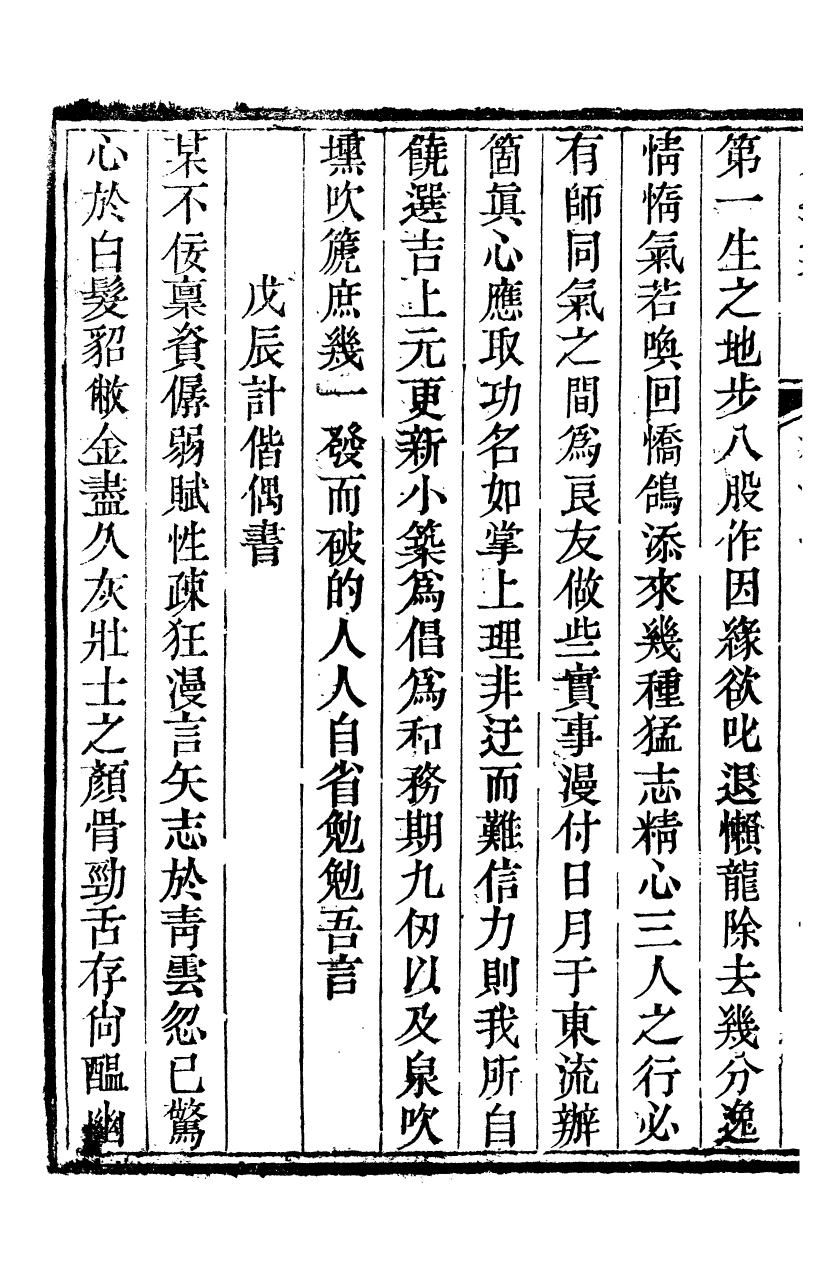 第一生之地步八股作因緣欲叱退懶龍除去幾分逸
情惰氣若喚回憍鴿添來幾種猛志精心三人之行必
有師同氣之間爲良友做些實事漫付日月于東流辦
箇眞心應取功名如掌上理非迂而難信力則我所自
饒選吉上元更新小築爲倡爲和務期九仞以及泉吹
壎吹篪庶幾一發而破的人人自省勉勉吾言
戊辰計偕偶書
某不佞稟資孱弱賦性疎狂漫言矢志於靑雲忽已驚
心於白髮貂敝金盡久灰壯士之顏骨勁舌存尙醞幽